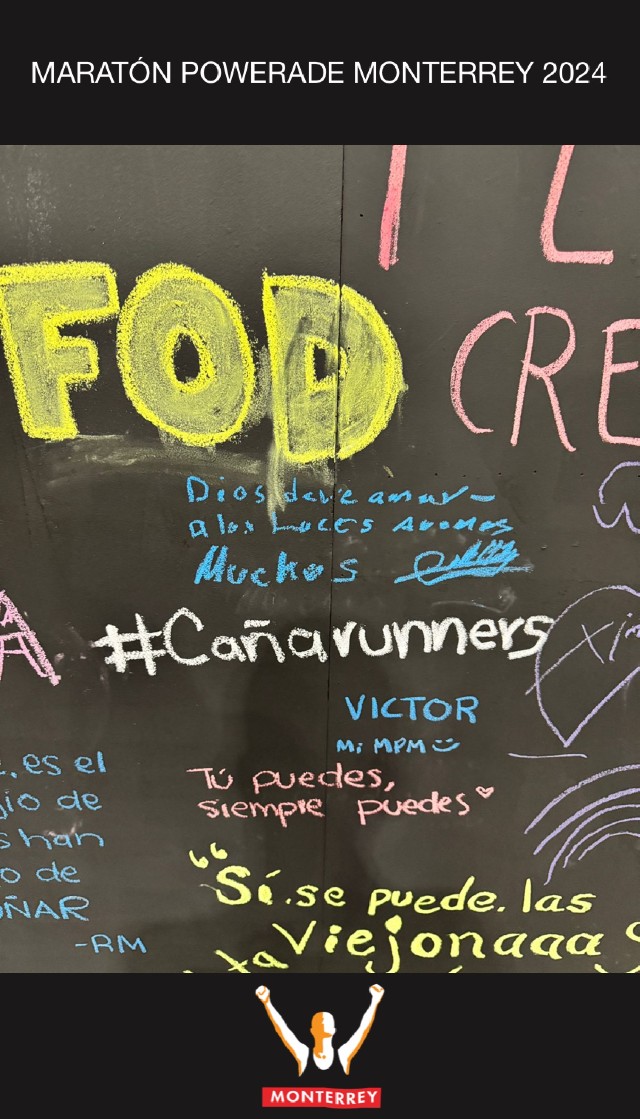 MARATÓN POWERADE MONTERREY 2024
FOD
CRE
Dios
a los
Muchos
A
#Cañarunners
xi
VICTOR
Mi MPM
es el
io de
s han
o de
ÑAR
-RM
Tú puedes,
siempre puedes
"Sí.se puede. las
Viejonaaa S
MONTERREY